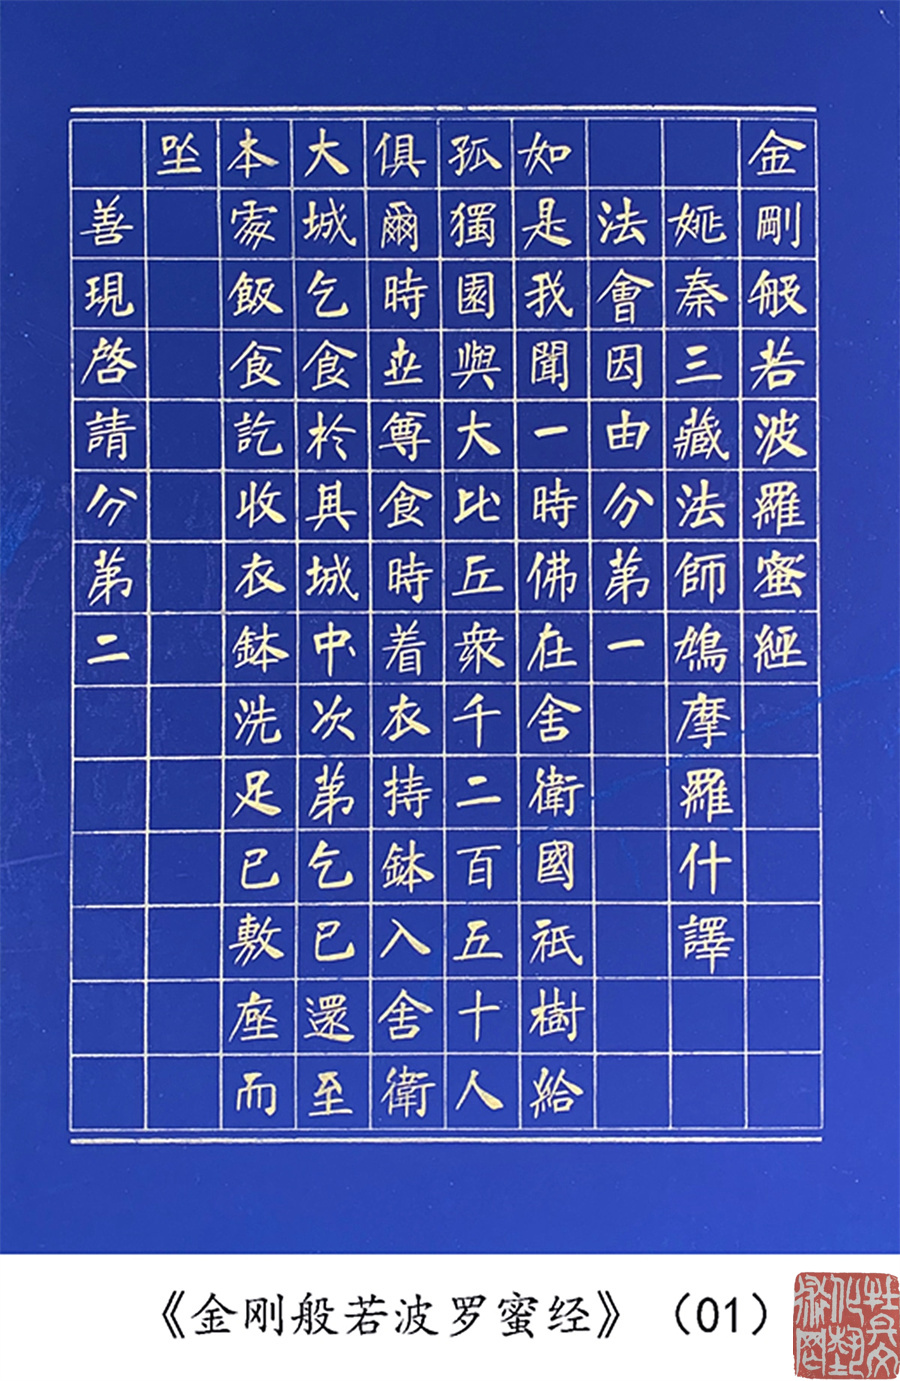 金剛般若波羅蜜經
姚秦三藏法師鳩摩羅什譯
法會因由分第一
如是我聞一時佛在舍衛國祇樹給
孤獨園與大比丘衆千二百五十人
俱爾時世尊食時着衣持鉢入舍衛
大城乞食於其城中次第乞已還至
本處飯食訖收衣鉢洗足已敷座而
坐
善現啓請分第二
《金刚般若波罗蜜经》（01）